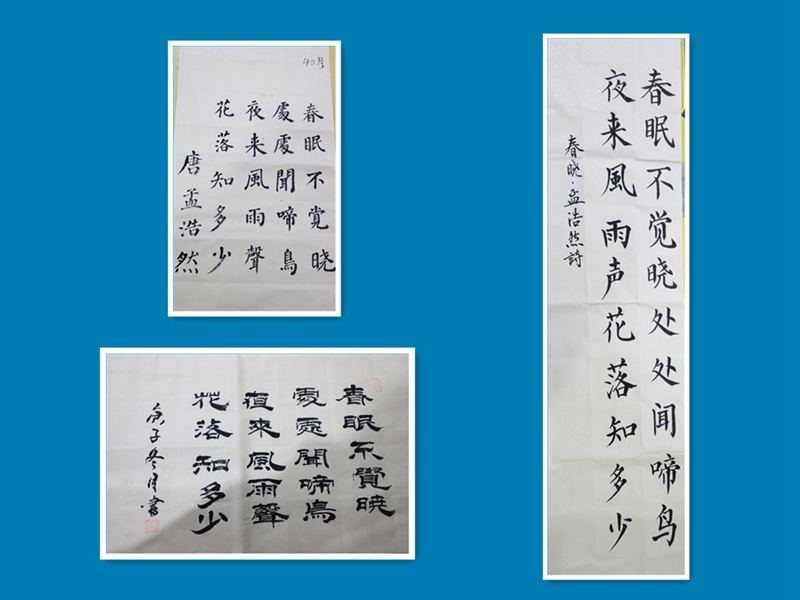 40号
春眠不觉晓
處處聞啼鳥
夜来風雨聲
花落知多少
唐孟浩然
春眠不覺晓
處處聞啼鳥
夜來風雨聲
花落知多少
庚子冬月書
春眠不觉晓处处闻啼鸟
夜来风雨声花落知多少
春晓·孟浩然詩